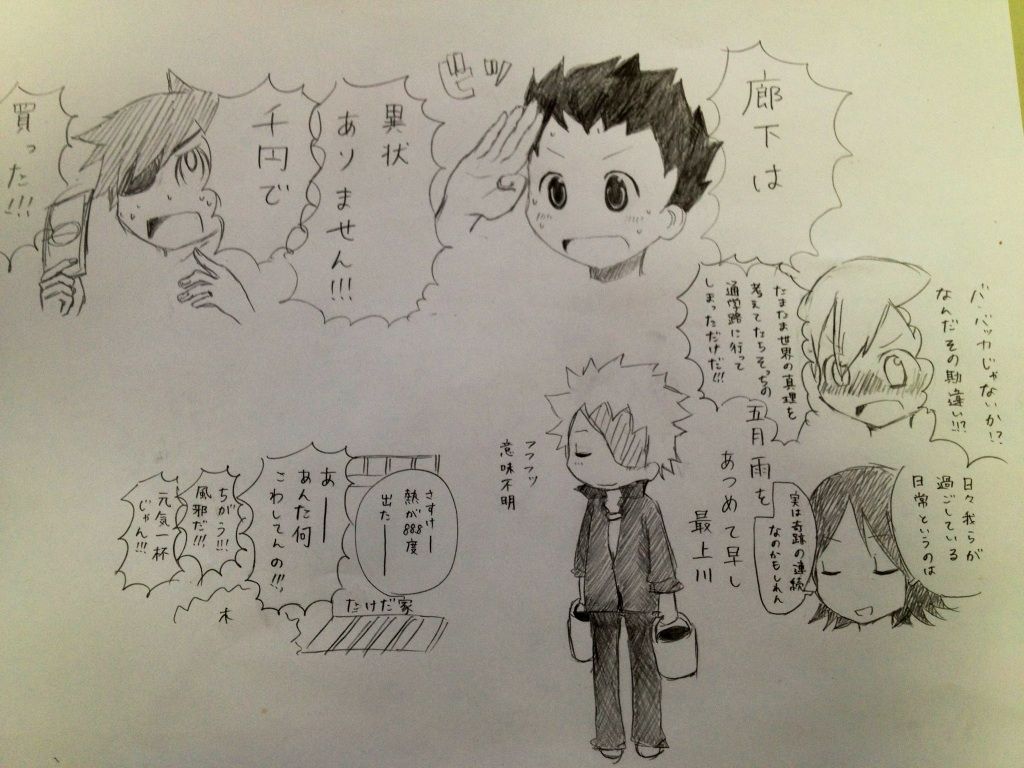 廊下は
ビッ
異状
ありません!!!
千円で
買った!!!
バ、バッカじゃないか!?
なんだその勘違い!!?
たまたま世界の真理を
考えてたらそっちの
通学路に行って
しまっただけだ!!!
日々我らが
過ごしている
日常というのは
実は奇跡の連続
なのかもしれん
五月雨を
あつめて早し
最上川
フフフッ
意味不明
さすけー
熱が888度
出たー
あー
あんた何
こわしてんの!!!
ちがう!!!
風邪だ!!!
元気一杯
じゃん!!!
たけだ家
木